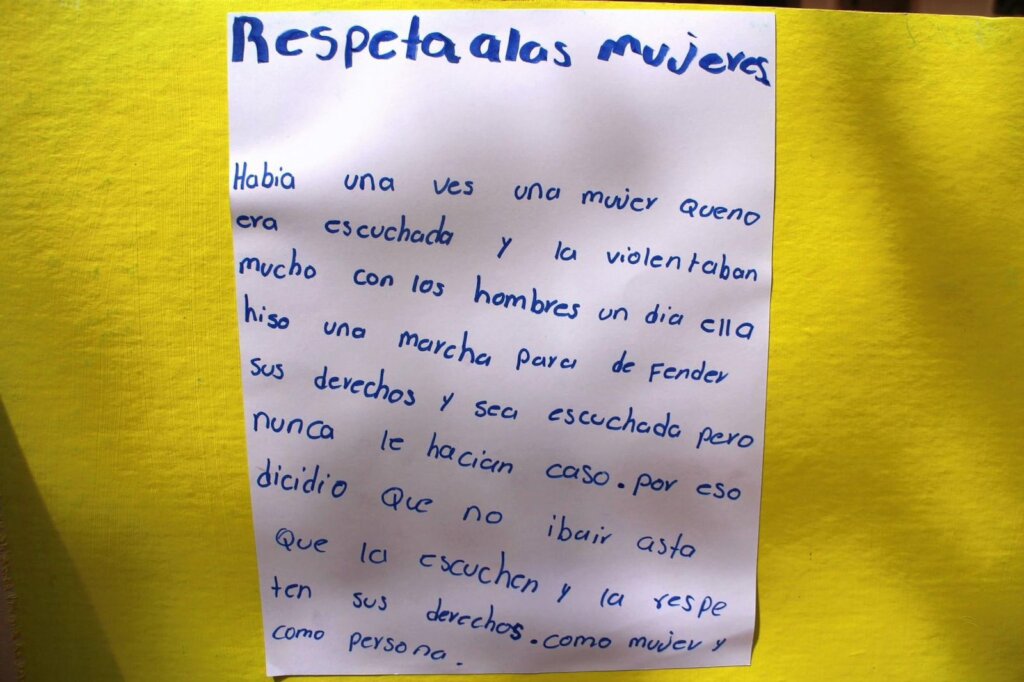 Respeta a las mujeres
Habia una ves una mujer queno
era escuchada y la violentaban
mucho con los hombres un dia ella
hiso una marcha para de Fender
sus derechos y sea escuchada pero
nunca le hacian caso. por eso
dicidio que no ibair asta
Que la escuchen y la respe
ten sus derechos. como mujer y
como persona.